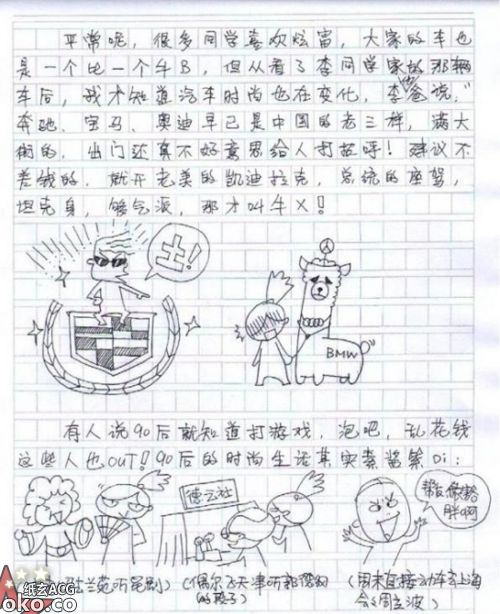 平常呢，很多同学喜欢炫富，大家的车也
是一个比一个牛B，但从看了李同学家的那辆
车后，我才知道汽车时尚也在变化，李爸说，"
奔驰、宝马、奥迪早已是中国的老三样，满大
街的，出门还真不好意思给人打招呼！建议不
差钱的，就开老美的凯迪拉克，总统的座驾，
坦克身，够气派，那才叫牛X！
土！
BMW
有人说90后就知道打游戏，泡吧，乱花钱
这些人也OUT！90后的时尚生活其实素酱紫Di：
德云社
帮我
胖啊
(偶尔飞天津听郭德纲
的段子)
(周末直接动车去上海
会会周立波)
纸玄ACG
oko.co